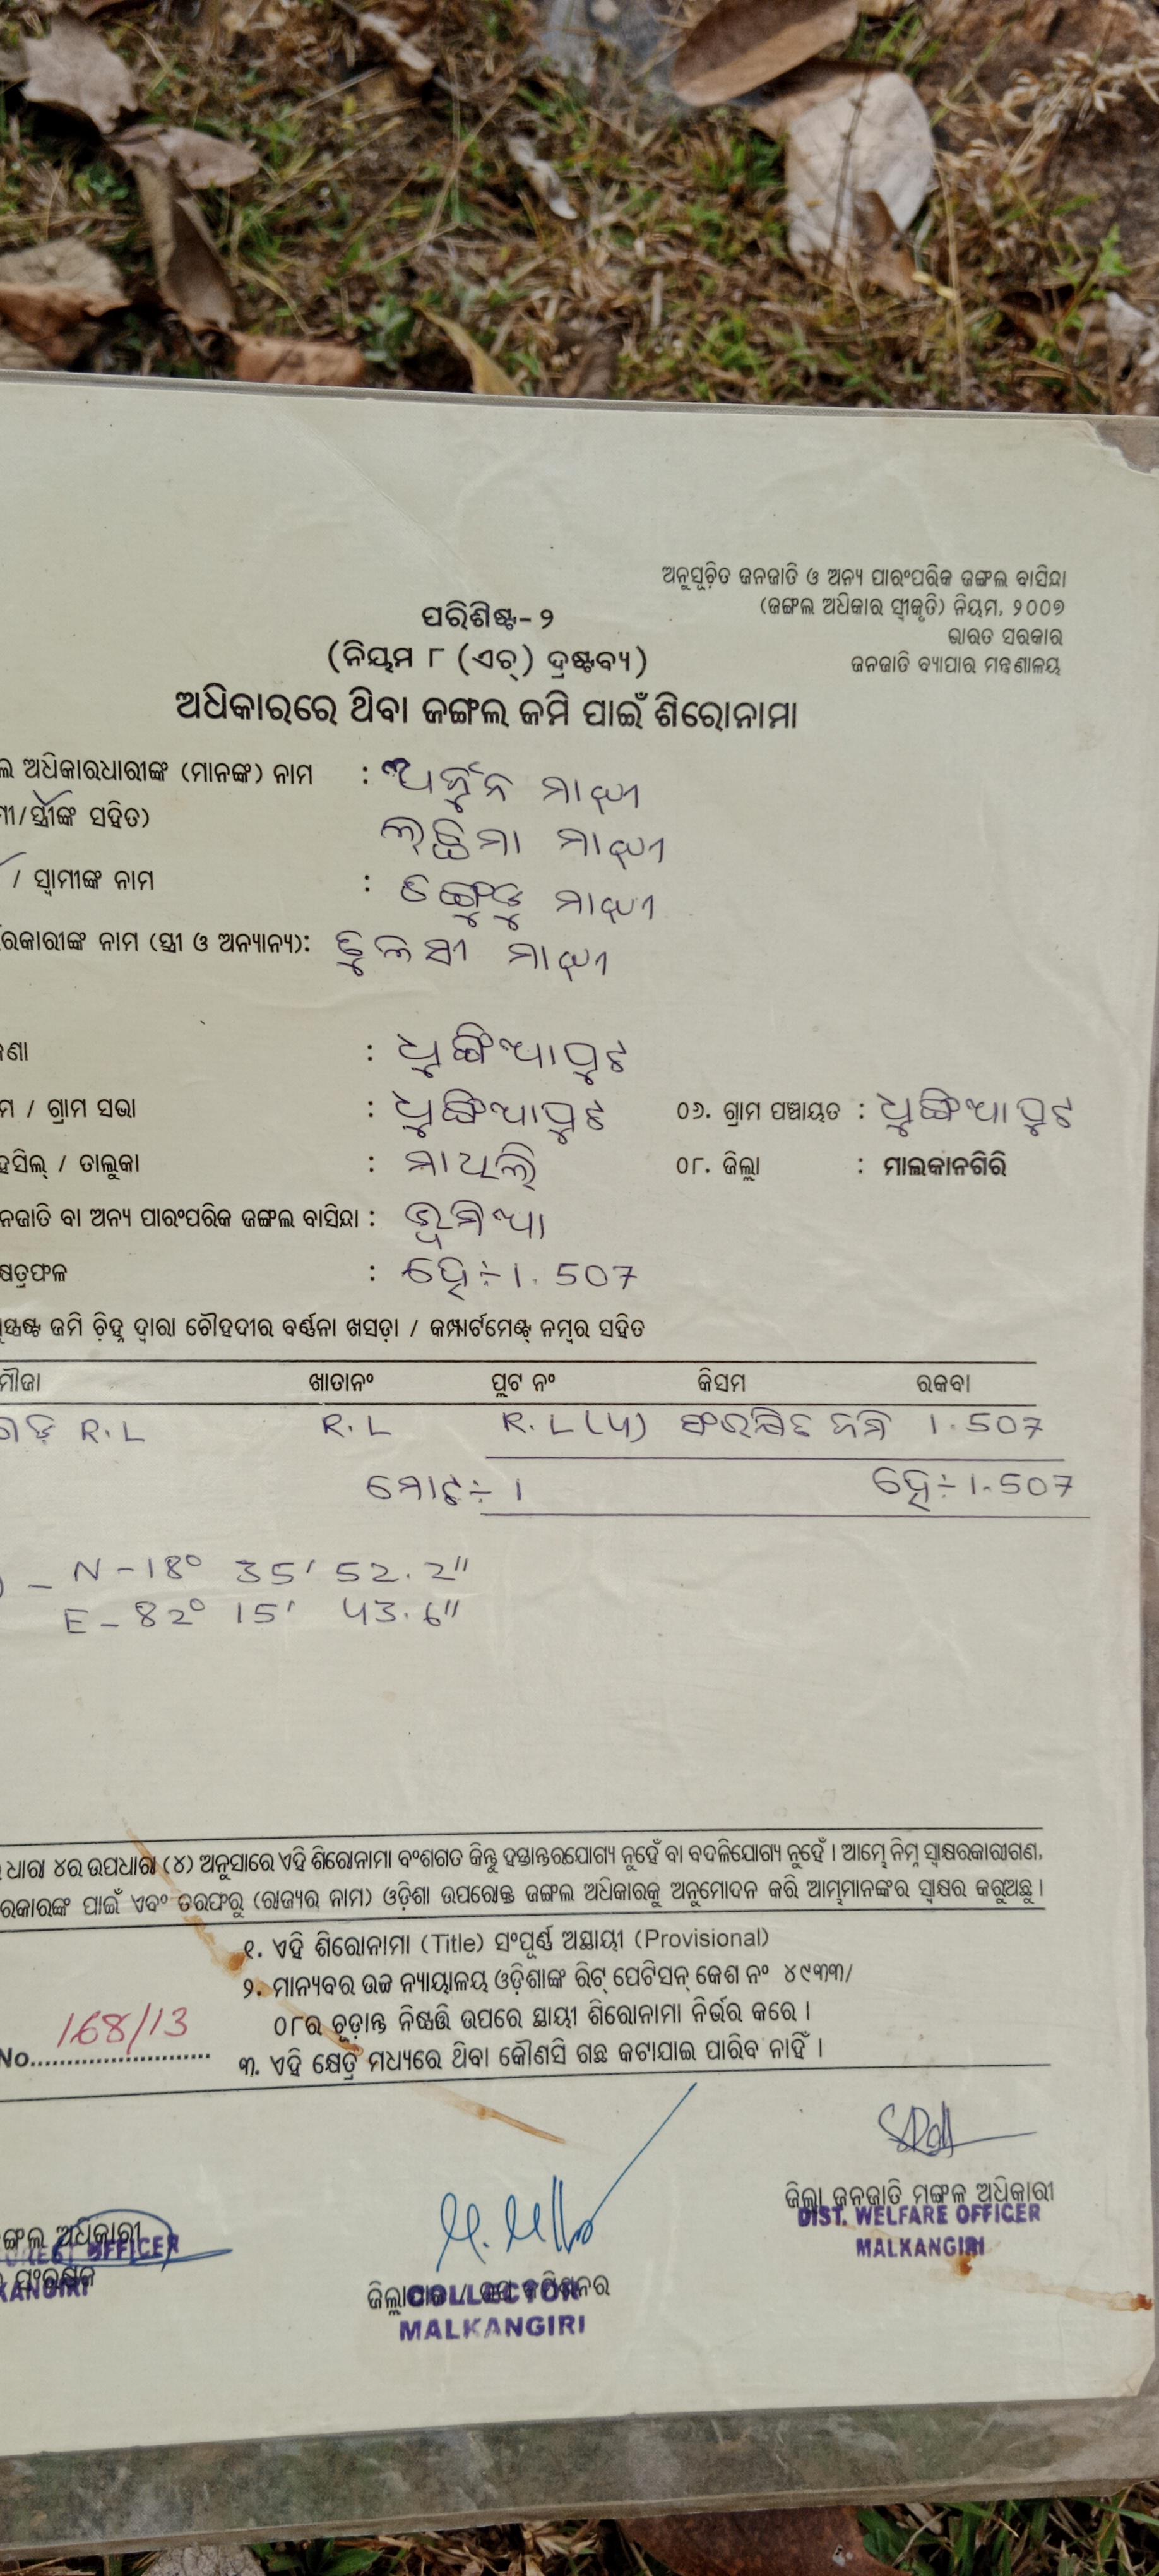 ଅନୁସୂଚିତ ଜନଜାତି ଓ ଅନ୍ୟ ପାରଂପରିକ ଜଙ୍ଗଲ ବାସିନ୍ଦା
(ଜଙ୍ଗଲ ଅଧିକାର ସ୍ୱୀକୃତି) ନିୟମ, ୨୦୦୭
ଭାରତ ସରକାର
ଜନଜାତି ବ୍ୟାପାର ମନ୍ତ୍ରଣାଳୟ
ପରିଶିଷ୍ଟ- ୨
(ନିୟମ ୮ (ଏଚ୍) ଦ୍ରଷ୍ଟବ୍ୟ)
ଅଧିକାରରେ ଥିବା ଜଙ୍ଗଲ ଜମି ପାଇଁ ଶିରୋନାମା
ଲ ଅଧିକାରଧାରୀଙ୍କ (ମାନଙ୍କ) ନାମ : ଅର୍ଜୁନ ମାଝୀ
ମୀ/ସ୍ତ୍ରୀଙ୍କ ସହିତ) ଲଛିମା ମାଝୀ
/ ସ୍ୱାମୀଙ୍କ ନାମ : ମାଝୀ
ରକାରୀଙ୍କ ନାମ (ସ୍ତ୍ରୀ ଓ ଅନ୍ୟାନ୍ୟ): ତୁଳସୀ ମାଝୀ
କଣା : ଧୁଙ୍ଗିଆପୁଟ
ମ / ଗ୍ରାମ ସଭା : ଧୁଙ୍ଗିଆପୁଟ ୦୬. ଗ୍ରାମ ପଞ୍ଚାୟତ : ଧୁଙ୍ଗିଆପୁଟ
ହସିଲ୍ / ତାଲୁକା : ମାଥିଲି ୦୮. ଜିଲ୍ଲା : ମାଲକାନଗିରି
ନଜାତି ବା ଅନ୍ୟ ପାରଂପରିକ ଜଙ୍ଗଲ ବାସିନ୍ଦା : ଭୂମିଆ
ଷେତ୍ରଫଳ : ହେ÷1.507
ସ୍ପଷ୍ଟ ଜମି ଚିହ୍ନ ଦ୍ୱାରା ଚୌହଦୀର ବର୍ଣ୍ଣନା ଖସଡ଼ା / କମ୍ପାର୍ଟମେଣ୍ଟ୍ ନମ୍ବର ସହିତ
ମୌଜା ଖାତାନଂ ପ୍ଲଟ ନଂ କିସମ ରକବା
R.L R.L R.L(4) ଜମି 1.507
ମୋଟ÷ 1 ହେ÷1.507
) - N-18° 35' 52.2"
E-82° 15' 43.6"
ଧାରା ୪ର ଉପଧାରା (୪) ଅନୁସାରେ ଏହି ଶିରୋନାମା ବଂଶଗତ କିନ୍ତୁ ହସ୍ତାନ୍ତରଯୋଗ୍ୟ ନୁହେଁ ବା ବଦଳିଯୋଗ୍ୟ ନୁହେଁ । ଆମ୍ଭେ ନିମ୍ନ ସ୍ୱାକ୍ଷରକାରୀଗଣ,
ରକାରଙ୍କ ପାଇଁ ଏବଂ ତରଫରୁ (ରାଜ୍ୟର ନାମ) ଓଡ଼ିଶା ଉପରୋକ୍ତ ଜଙ୍ଗଲ ଅଧିକାରକୁ ଅନୁମୋଦନ କରି ଆମ୍ଭମାନଙ୍କର ସ୍ୱାକ୍ଷର କରୁଅଛୁ ।
୧. ଏହି ଶିରୋନାମା (Title) ସଂପୂର୍ଣ୍ଣ ଅସ୍ଥାୟୀ (Provisional)
୨. ମାନ୍ୟବର ଉଚ୍ଚ ନ୍ୟାୟାଳୟ ଓଡ଼ିଶାଙ୍କ ରିଟ୍ ପେଟିସନ୍ କେଶ ନଂ ୪୯୩୩/
୦୮ର ଚୂଡ଼ାନ୍ତ ନିଷ୍ପତ୍ତି ଉପରେ ସ୍ଥାୟୀ ଶିରୋନାମା ନିର୍ଭର କରେ ।
No. 168/13
୩. ଏହି କ୍ଷେତ୍ର ମଧ୍ୟରେ ଥିବା କୌଣସି ଗଛ କଟାଯାଇ ପାରିବ ନାହିଁ ।
ଜିଲ୍ଲା ଜନଜାତି ମଙ୍ଗଳ ଅଧିକାରୀ
DIST. WELFARE OFFICER
MALKANGIRI
ଙ୍ଗଲ ଅଧିକାରୀ
OFFICER
KANGIRI
COLLECTOR
MALKANGIRI